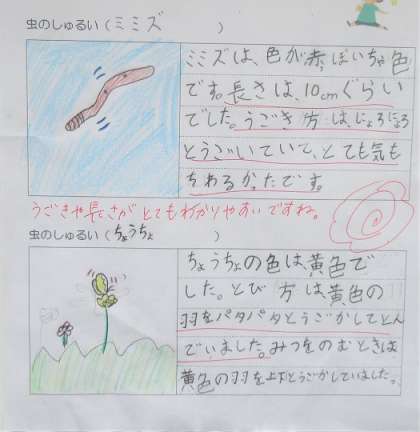 虫のしゅるい(ミミズ)
ミミズは、色が赤っぽいちゃ色
です。長さは、10cmぐらい
でした。うごき方は、にょろにょろ
とうごいていて、とても気も
ちわるかったです。
うごきや長さがとてもわかりやすいですね。
虫のしゅるい(ちょうちょ)
ちょうちょの色は、黄色で
した。とび方は、黄色の
羽をパタパタとうごかしてとん
でいました。みつをのむときは
黄色の羽を上下とうごかしていました。